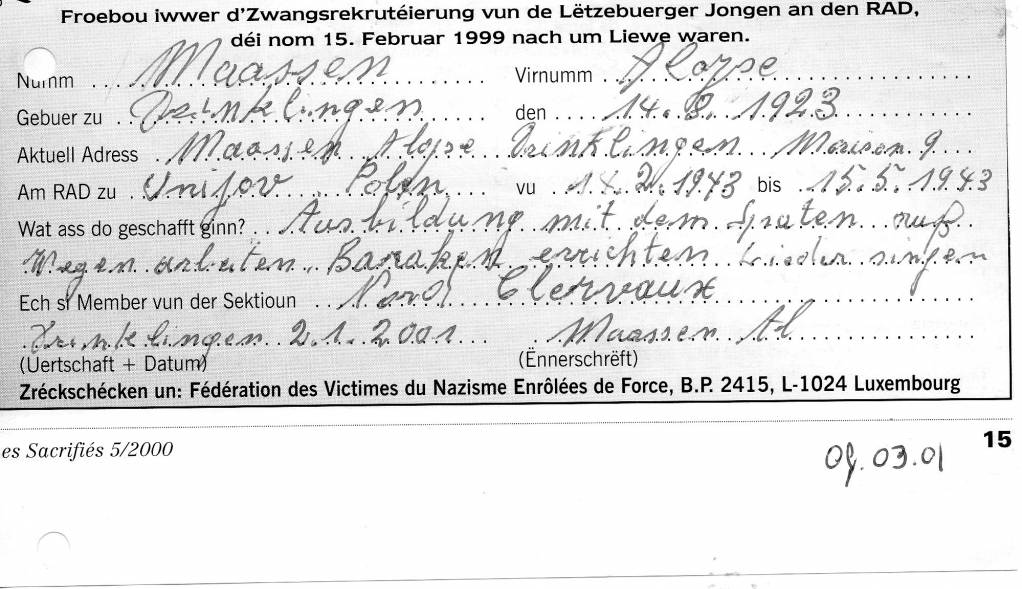 Froebou iwwer d'Zwangsrekrutéierung vun de Lëtzebuerger Jongen an den RAD,
déi nom 15. Februar 1999 nach um Liewe waren.
Numm Maassen Virnumm Aloyse
Gebuer zu Drinklingen den 14. 8. 1923
Aktuell Adress Maassen Aloyse Drinklingen Maison 9
Am RAD zu Unijov Polen vu 14.2.1943 bis 15.5.1943
Wat ass do geschafft ginn? Ausbildung mit dem Spaten auf
Wegen arbeiten Baraken errichten Lieder singen
Ech si Member vun der Sektioun Nord Clervaux
Drinklingen 2.1.2001 Maassen Al
(Uertschaft + Datum) (Ënnerschrëft)
Zréckschécken un: Fédération des Victimes du Nazisme Enrôlées de Force, B.P. 2415, L-1024 Luxembourg
es Sacrifiés 5/2000 15
03.01